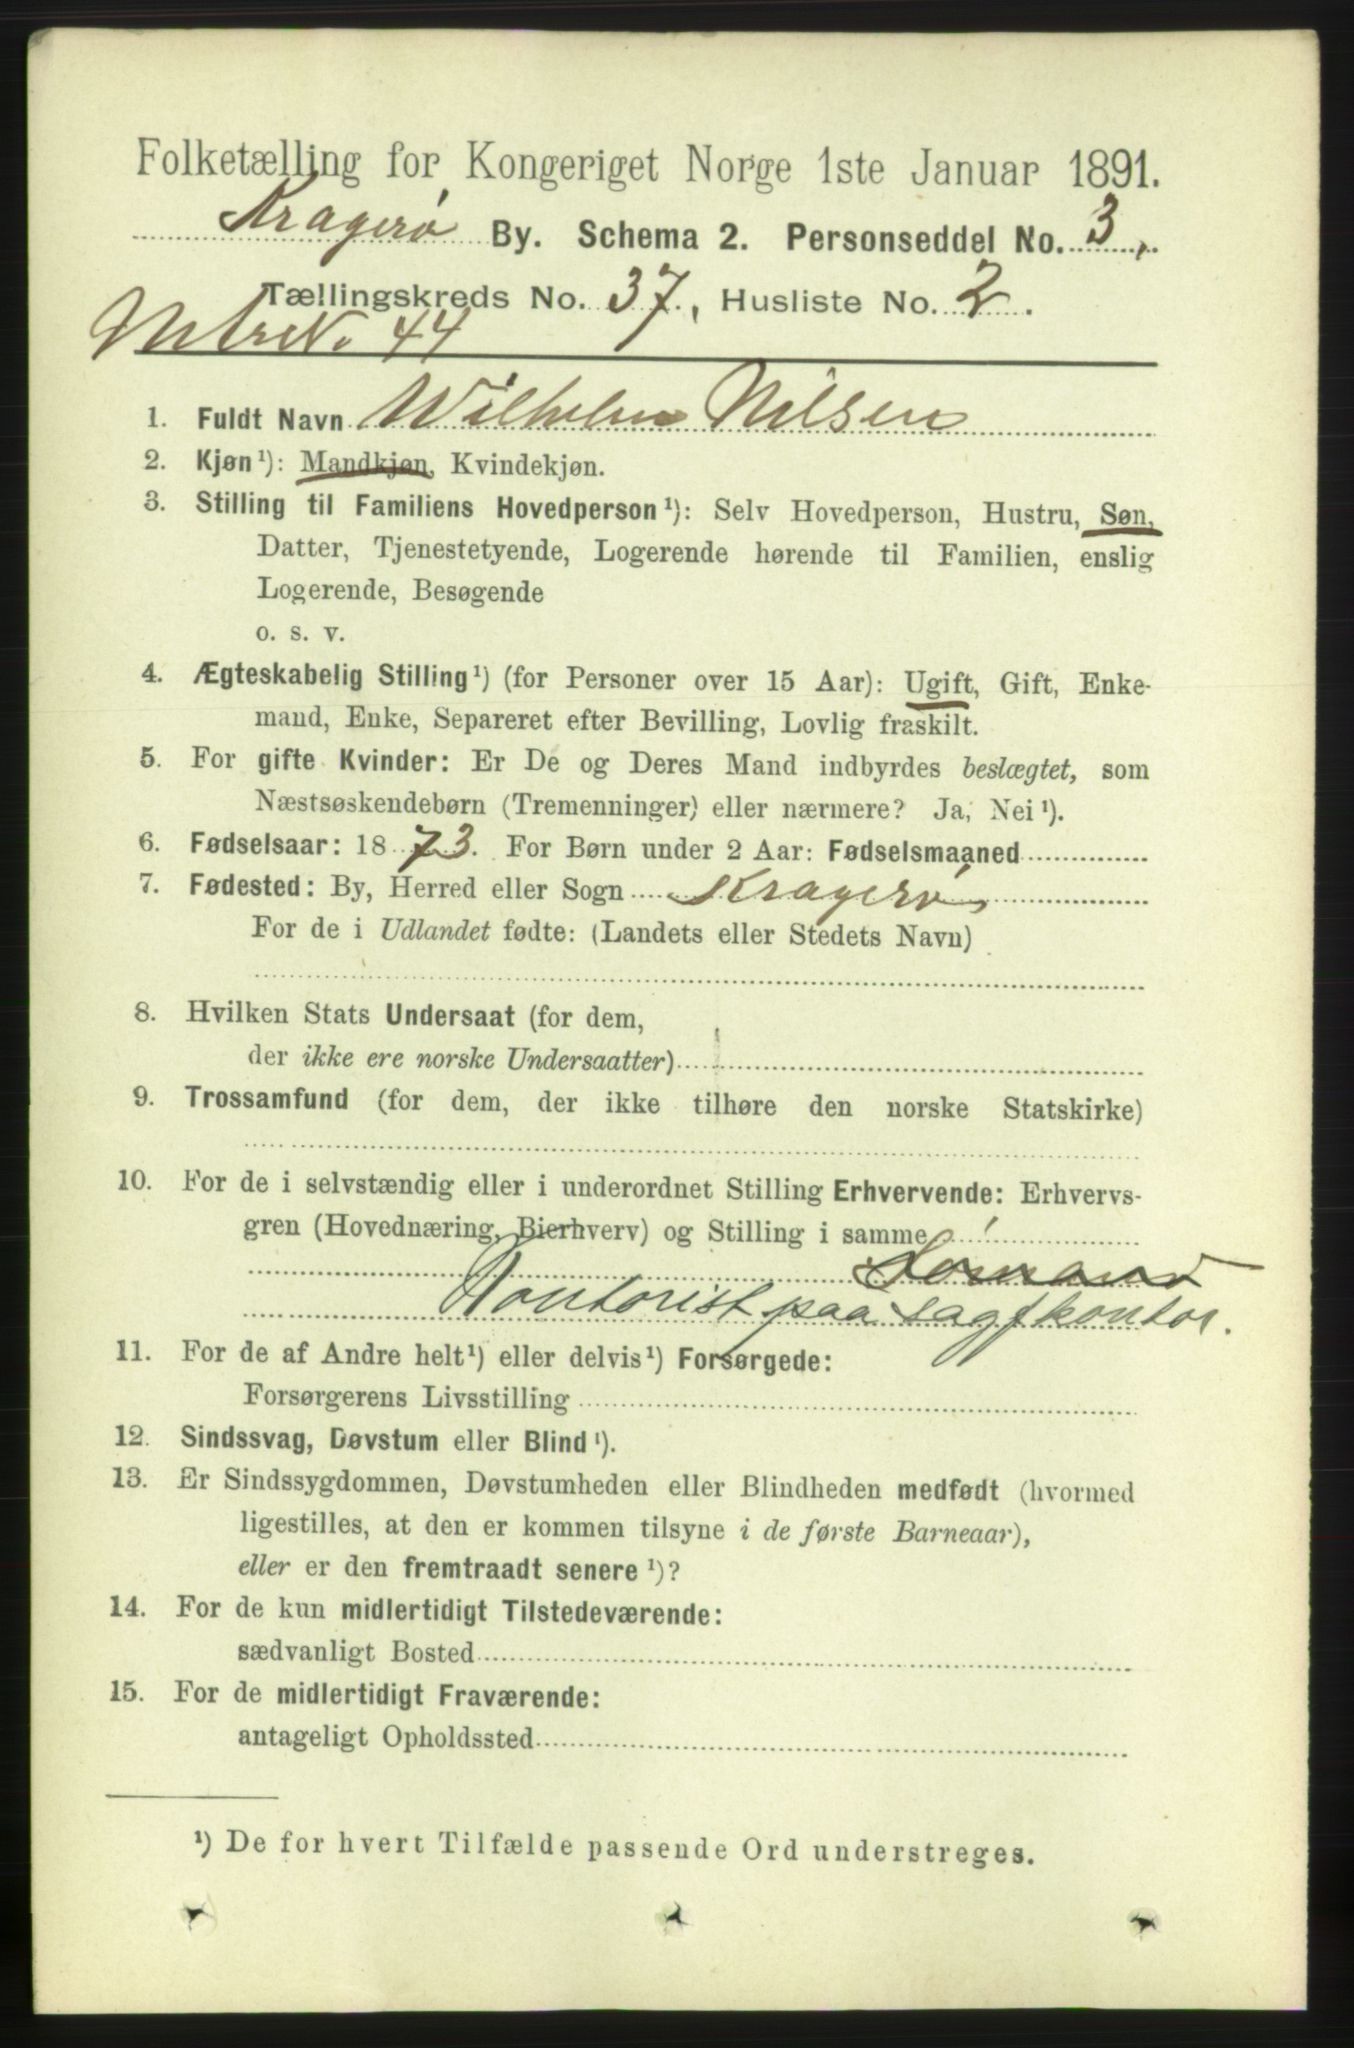 Folketælling for Kongeriget Norge 1ste Januar 1891.
Kragerø By. Schema 2. Personseddel No. 3,
Tællingskreds No. 37, Husliste No. 2.
Mtr. No. 44
1. Fuldt Navn Wilhelm Nilsen
2. Kjøn¹): Mandkjøn, Kvindekjøn.
3. Stilling til Familiens Hovedperson¹): Selv Hovedperson, Hustru, Søn,
Datter, Tjenestetyende, Logerende hørende til Familien, enslig
Logerende, Besøgende
o. s. v.
4. Ægteskabelig Stilling¹) (for Personer over 15 Aar): Ugift, Gift, Enke-
mand, Enke, Separeret efter Bevilling, Lovlig fraskilt.
5. For gifte Kvinder: Er De og Deres Mand indbyrdes beslægtet, som
Næstsøskendebørn (Tremenninger) eller nærmere? Ja, Nei¹).
6. Fødselsaar: 1873. For Børn under 2 Aar: Fødselsmaaned
7. Fødested: By, Herred eller Sogn Kragerø
For de i Udlandet fødte: (Landets eller Stedets Navn)
8. Hvilken Stats Undersaat (for dem,
der ikke ere norske Undersaatter)
9. Trossamfund (for dem, der ikke tilhøre den norske Statskirke)
10. For de i selvstændig eller i underordnet Stilling Erhvervende: Erhvervs-
gren (Hovednæring, Bierhverv) og Stilling i samme
Sømand
Kontorist paa sagfkontor.
11. For de af Andre helt¹) eller delvis¹) Forsørgede:
Forsørgerens Livsstilling
12. Sindssvag, Døvstum eller Blind¹).
13. Er Sindssygdommen, Døvstumheden eller Blindheden medfødt (hvormed
ligestilles, at den er kommen tilsyne i de første Barneaar),
eller er den fremtraadt senere¹)?
14. For de kun midlertidigt Tilstedeværende:
sædvanligt Bosted
15. For de midlertidigt Fraværende:
antageligt Opholdssted
¹) De for hvert Tilfælde passende Ord understreges.